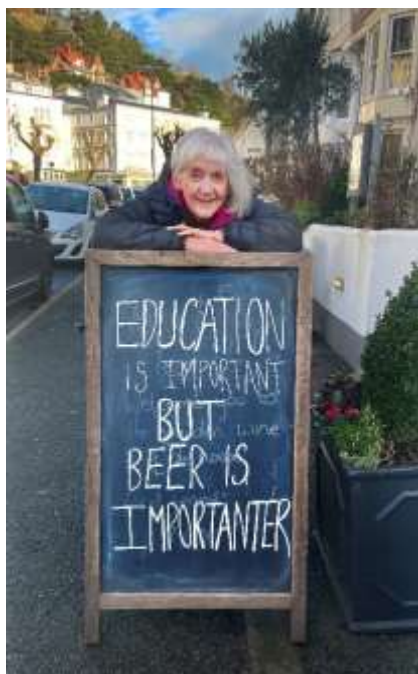 EDUCATION
IS IMPORTANT
BUT
BEER IS
IMPORTANTER